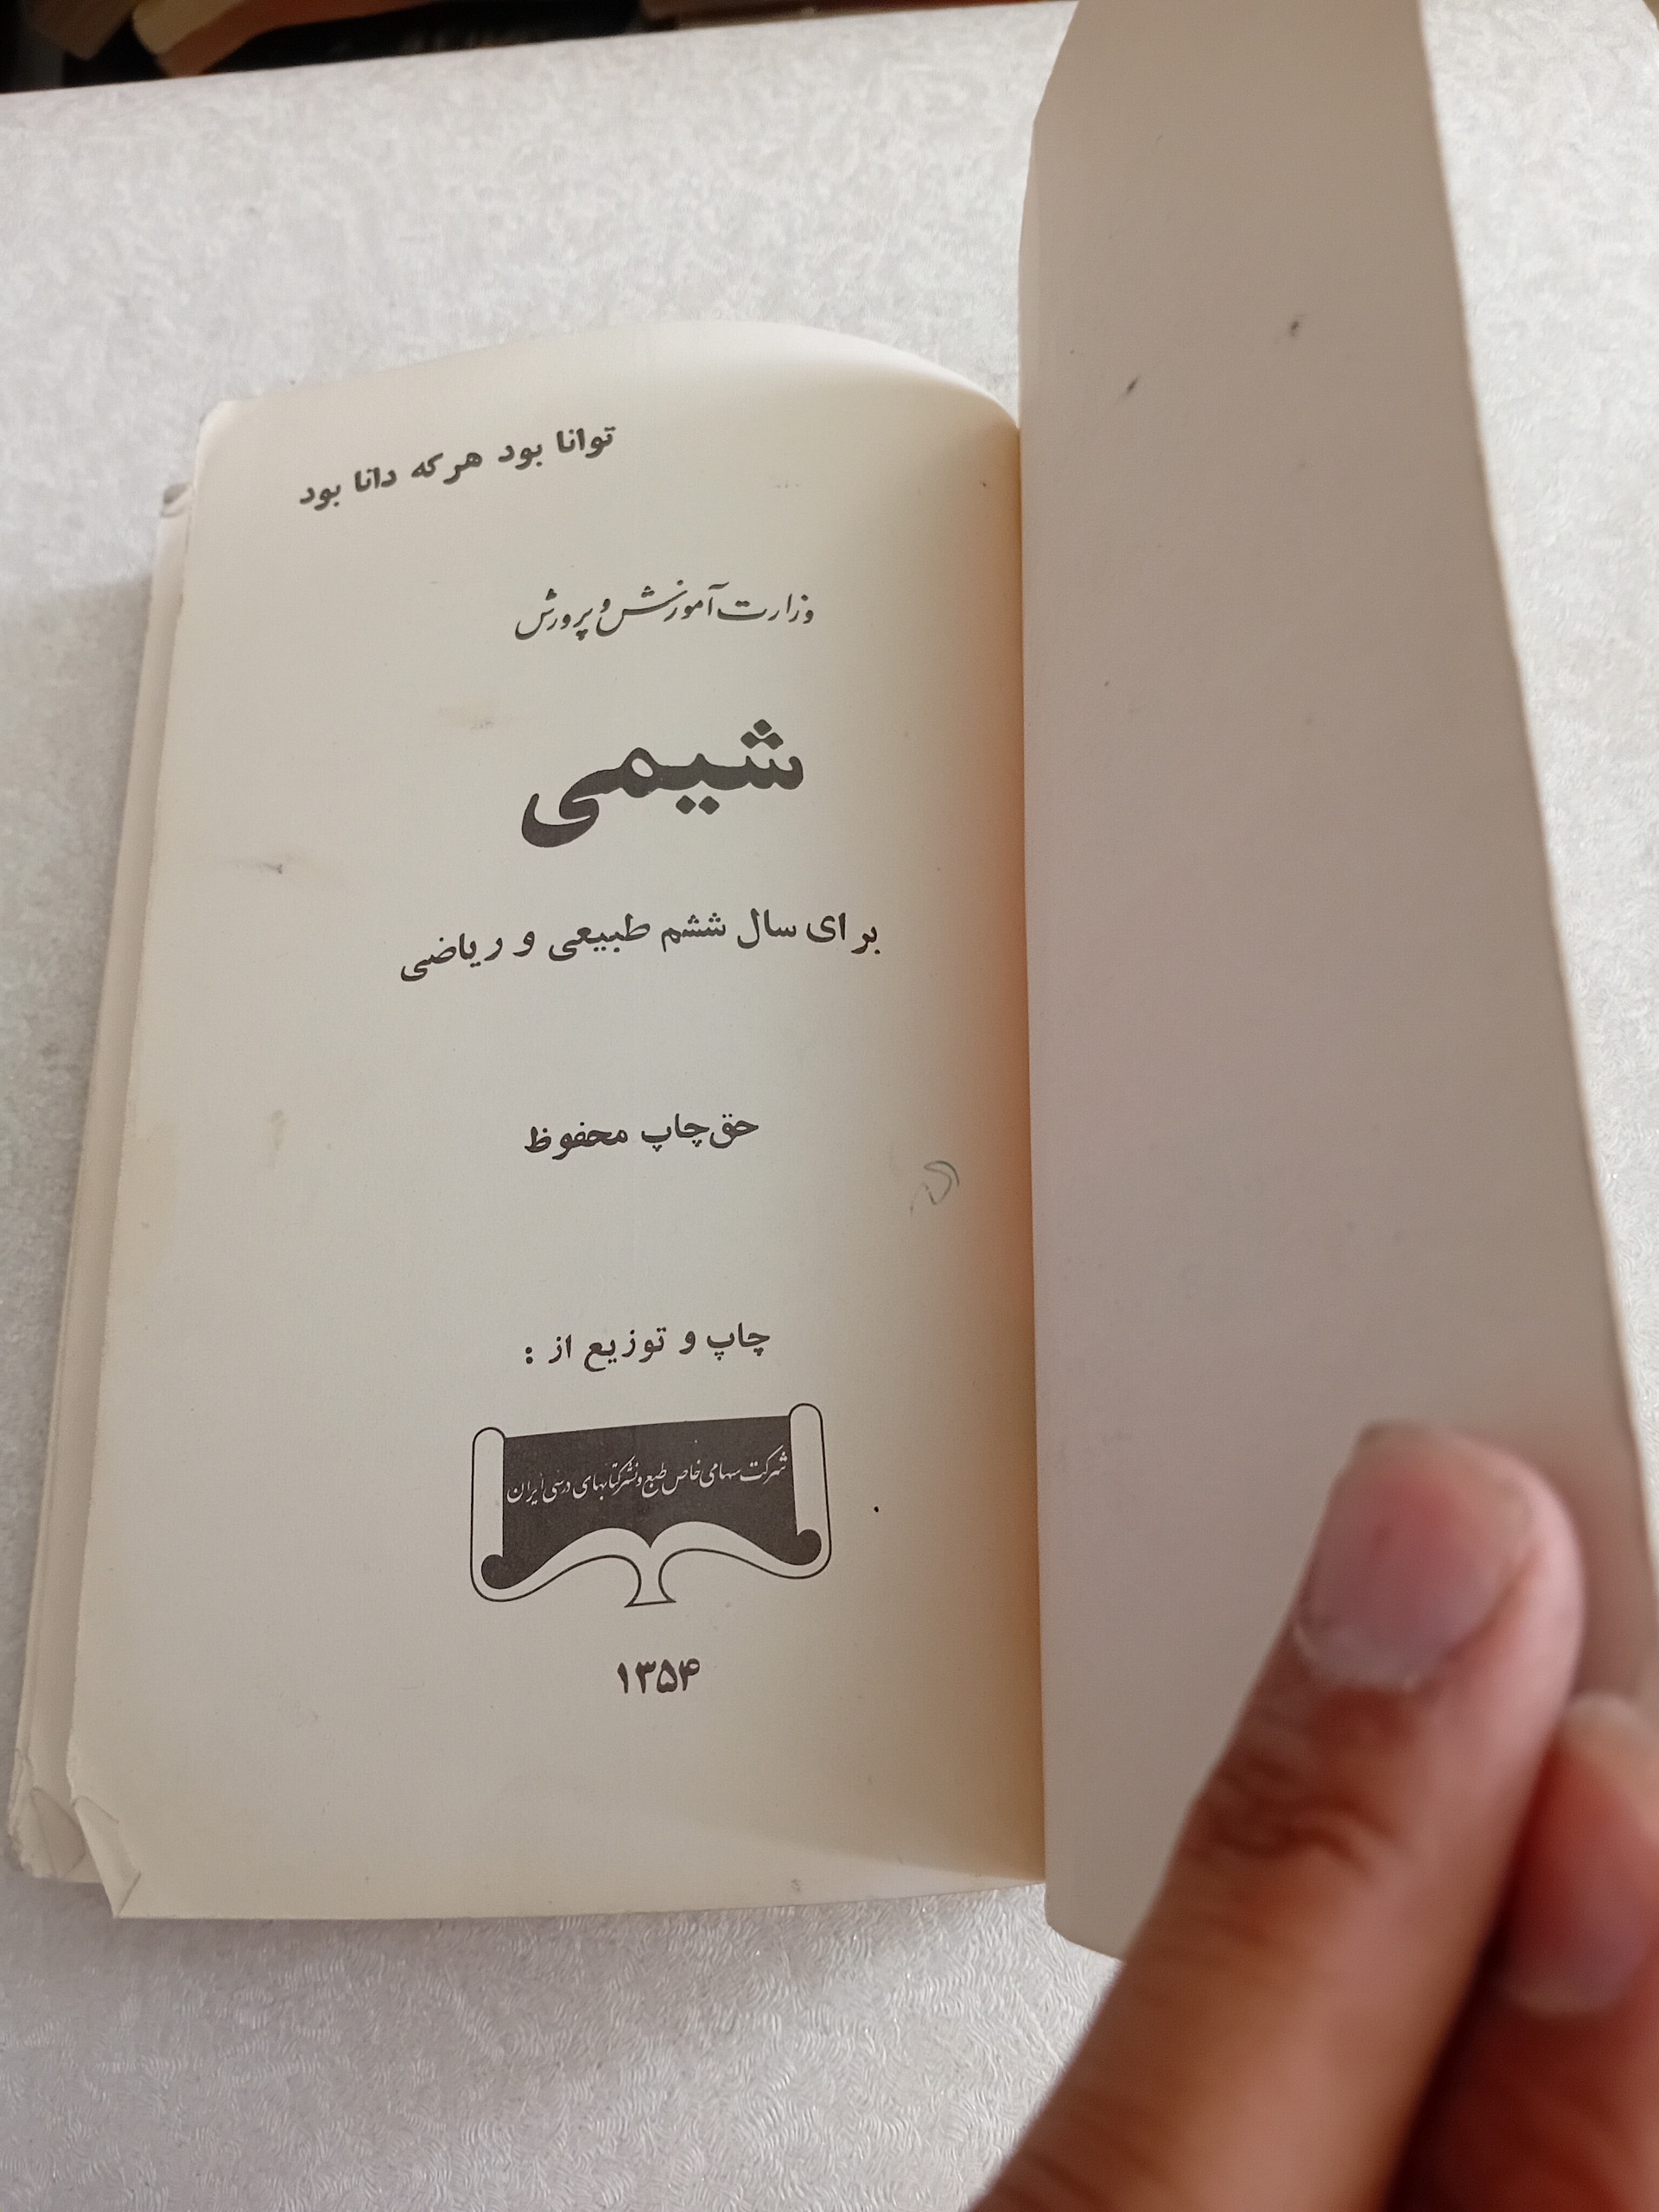 توانا بود هر که دانا بود
وزارت آموزش و پرورش
شیمی
برای سال ششم طبیعی و ریاضی
حق چاپ محفوظ
چاپ و توزیع از :
شرکت سهامی خاص طبع و نشر کتابهای درسی ایران
۱۳۵۴